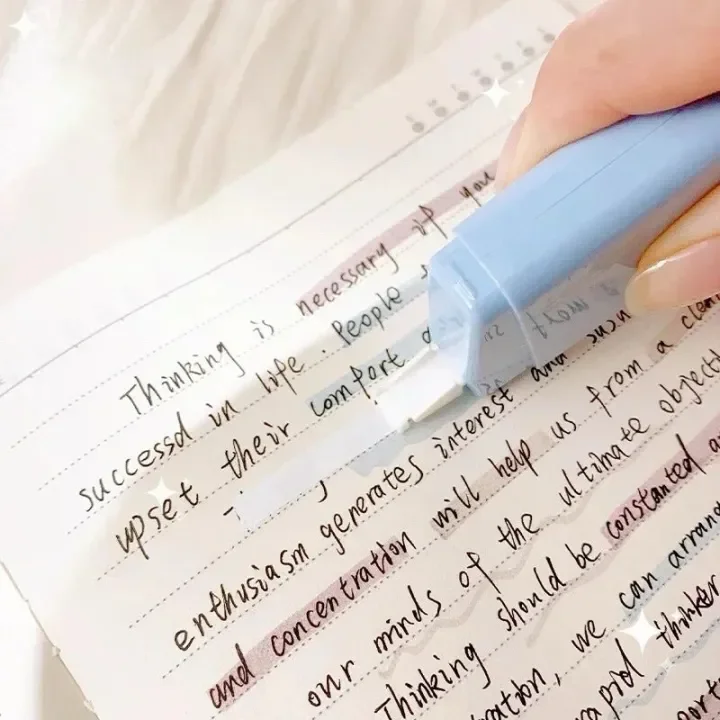 Thinking is necessary of you
successd in life. People
upset their comfort
enthusiasm generates interest and
and concentration will help us from a clean
our minds of the ultimate object
Thinking should be constanted
we can arrang
rapid thinker